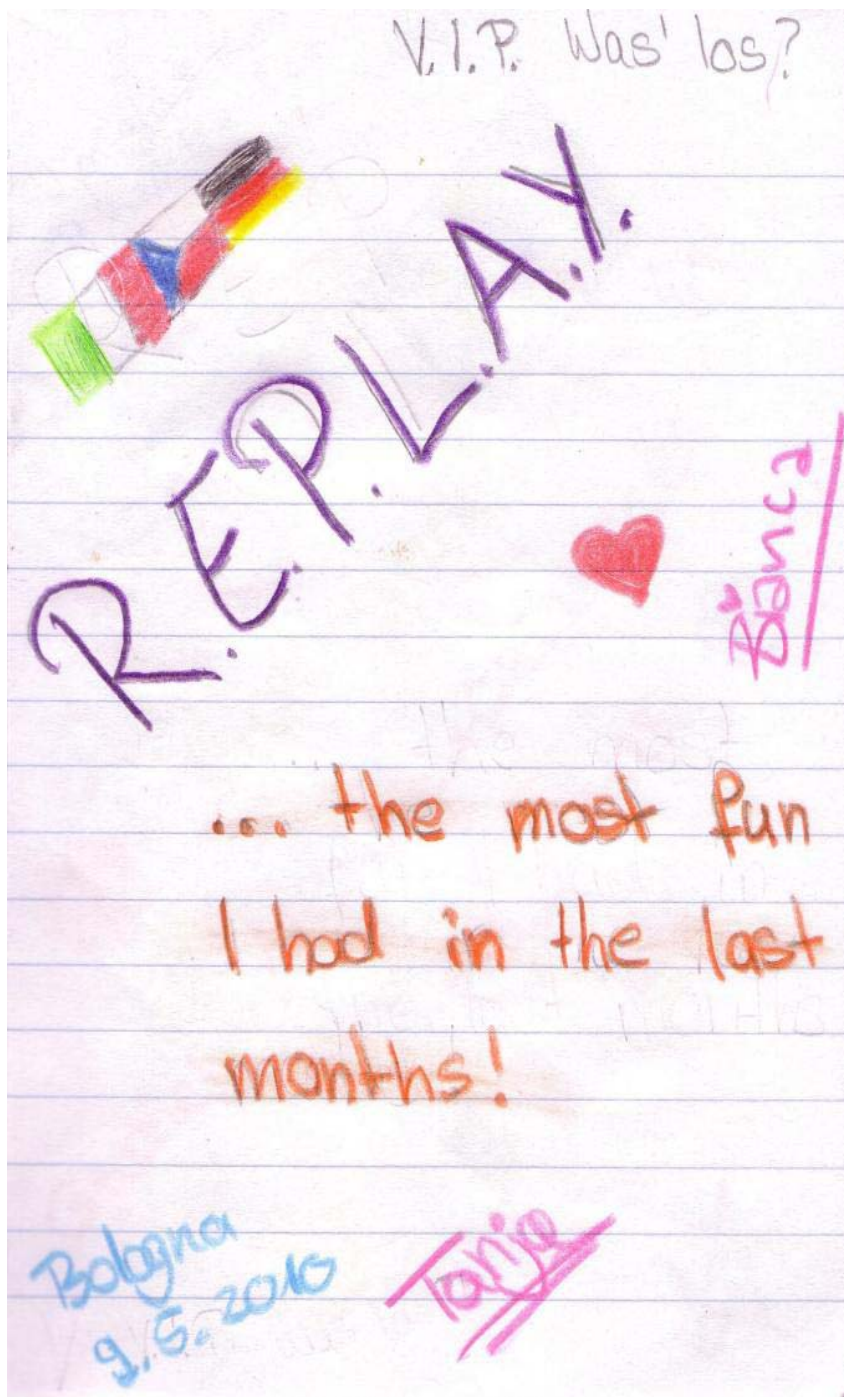 V.I.P. Was' los?
R.E.P.L.A.Y.
Bianca
... the most fun
I had in the last
months!
Bologna
9.5.2010
Tanja